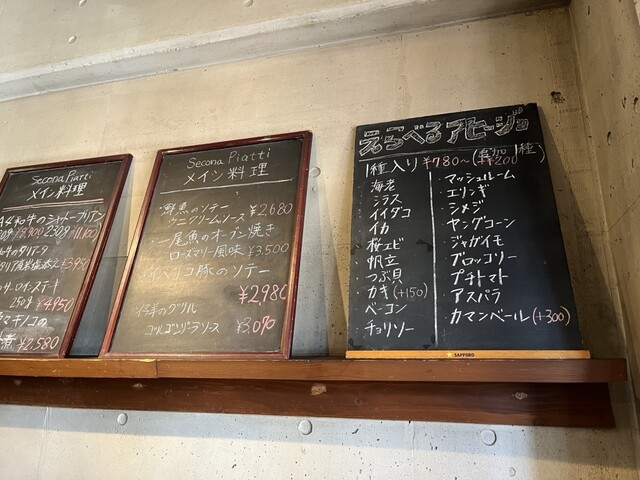 Secona Piatti
メイン料理
A4和牛のシャトーブリアン
¥3,909 230g ¥11,100
¥3,950
250g ¥4950
¥2,580
Secona Piatti
メイン料理
・鮮魚のソテー
ウニクリームソース ¥2,680
・一尾魚のオーブン焼き
ローズマリー風味 ¥3,500
イベリコ豚のソテー
¥2,980
仔羊のグリル
ゴルゴンゾーラソース ¥3,070
えらべるアヒージョ
1種入り ¥780~(追加1種 +¥200)
海老
シラス
イイダコ
イカ
桜エビ
帆立
つぶ貝
カキ(+150)
ベーコン
チョリソー
・マッシュルーム
・エリンギ
・シメジ
・ヤングコーン
・ジャガイモ
・ブロッコリー
・プチトマト
・アスパラ
・カマンベール(+300)
SAPPORO